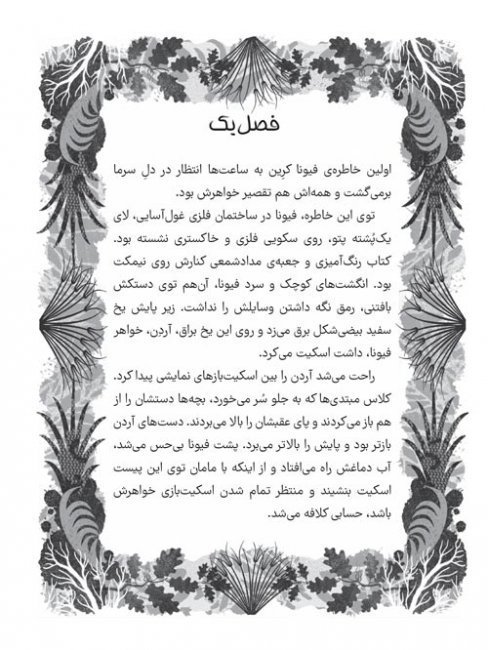 فصل یک
اولین خاطره‌ی فیونا کرین به ساعت‌ها انتظار در دلِ سرما
برمی‌گشت و همه‌اش هم تقصیر خواهرش بود.
توی این خاطره، فیونا در ساختمان فلزی غول‌آسایی، لای
یک‌پُشته پتو، روی سکویی فلزی و خاکستری نشسته بود.
کتاب رنگ‌آمیزی و جعبه‌ی مدادشمعی کنارش روی نیمکت
بود. انگشت‌های کوچک و سرد فیونا، آن‌هم توی دستکش
بافتنی، رمق نگه داشتن وسایلش را نداشت. زیر پایش یخ
سفید بیضی‌شکل برق می‌زد و روی این یخ براق، آردن، خواهر
فیونا، داشت اسکیت می‌کرد.
راحت می‌شد آردن را بین اسکیت‌بازهای نمایشی پیدا کرد.
کلاس مبتدی‌ها که به جلو سُر می‌خورد، بچه‌ها دستشان را از
هم باز می‌کردند و پای عقبشان را بالا می‌بردند. دست‌های آردن
بازتر بود و پایش را بالاتر می‌برد. پشت فیونا بی‌حس می‌شد،
آب دماغش راه می‌افتاد و از اینکه با مامان توی این پیست
اسکیت بنشیند و منتظر تمام شدن اسکیت‌بازی خواهرش
باشد، حسابی کلافه می‌شد.